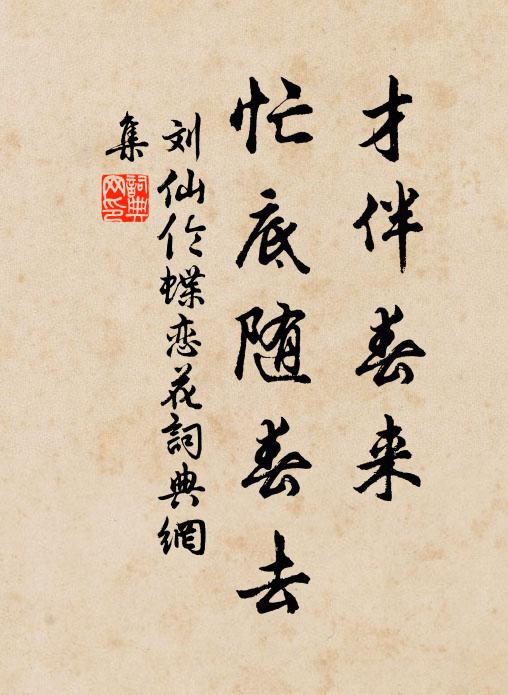 才伴春来
忙底随春去
刘仙伦蝶恋花詞典網
集
詞典网印